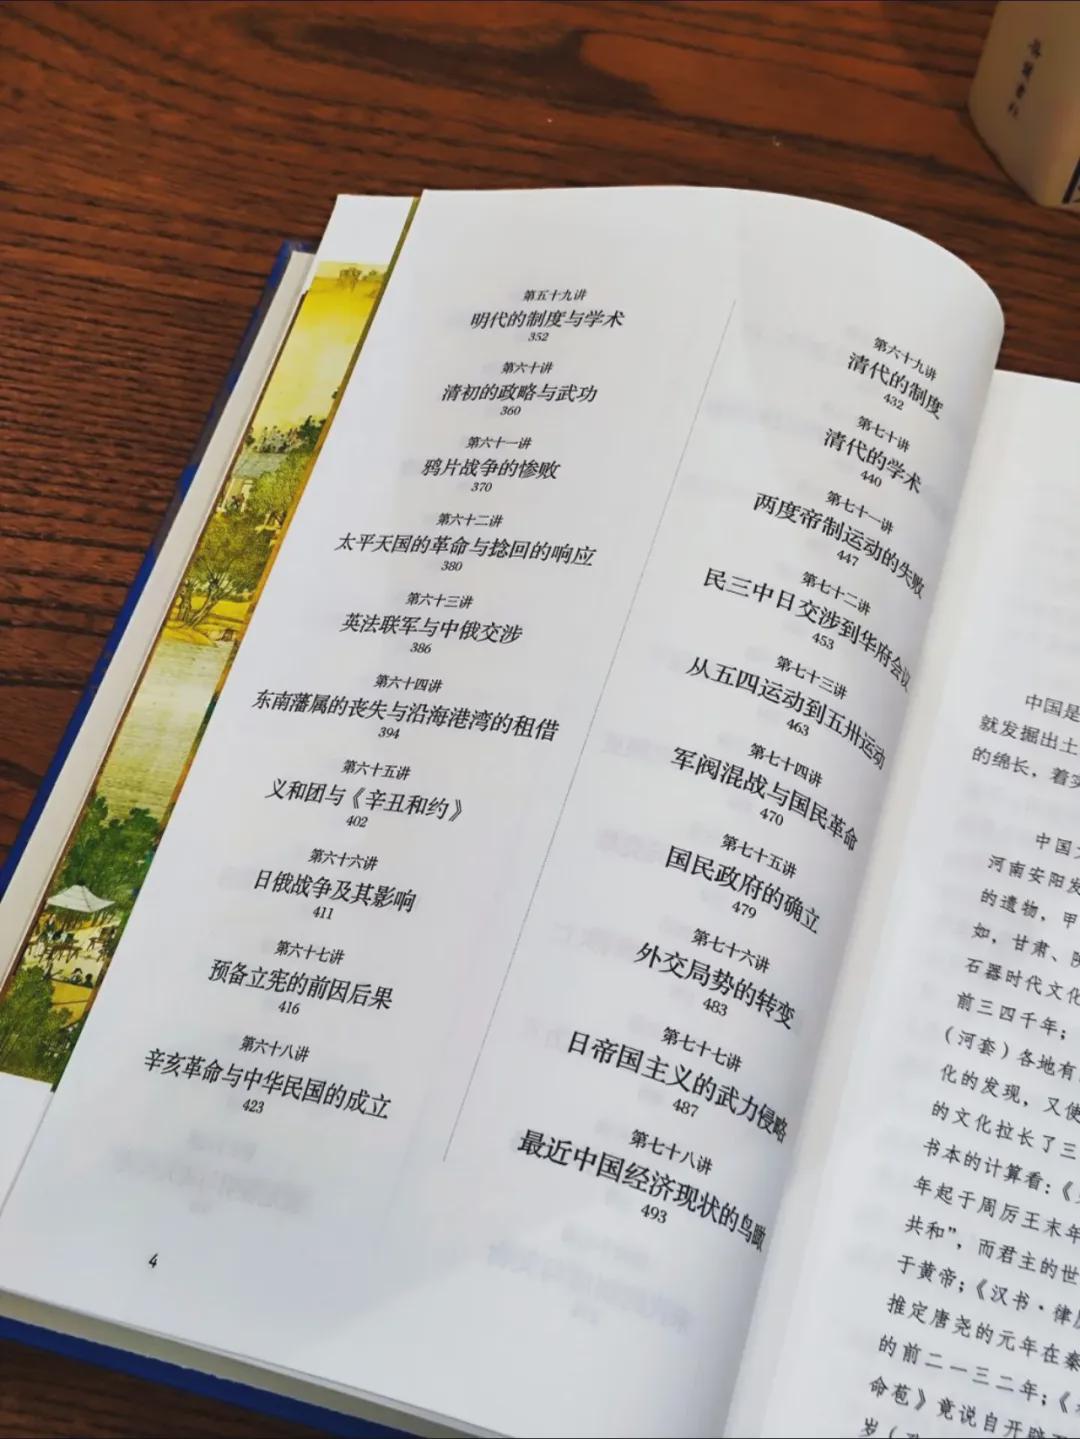 第五十九讲
明代的制度与学术
352
第六十讲
清初的政略与武功
360
第六十一讲
鸦片战争的惨败
370
第六十二讲
太平天国的革命与捻回的响应
380
第六十三讲
英法联军与中俄交涉
386
第六十四讲
东南藩属的丧失与沿海港湾的租借
394
第六十五讲
义和团与《辛丑和约》
402
第六十六讲
日俄战争及其影响
411
第六十七讲
预备立宪的前因后果
416
第六十八讲
辛亥革命与中华民国的成立
423
第六十九讲
清代的制度
432
第七十讲
清代的学术
440
第七十一讲
两度帝制运动的失败
447
第七十二讲
民三中日交涉到华府会议
453
第七十三讲
从五四运动到五卅运动
463
第七十四讲
军阀混战与国民革命
470
第七十五讲
国民政府的确立
479
第七十六讲
外交局势的转变
483
第七十七讲
日帝国主义的武力侵略
487
第七十八讲
最近中国经济现状的鸟瞰
493
4
中国是
就发掘出土
的绵长，着实
中国
河南安阳发
的遗物，甲
如，甘肃、
石器时代文化
前三四千年；
（河套）各地有
化的发现，又使
的文化拉长了三
书本的计算看：《
年起于周厉王末年
共和”，而君主的世
于黄帝；《汉书·律
推定唐尧的元年在秦
的前二一三二年；《
命苞》竟说自开辟
岁（